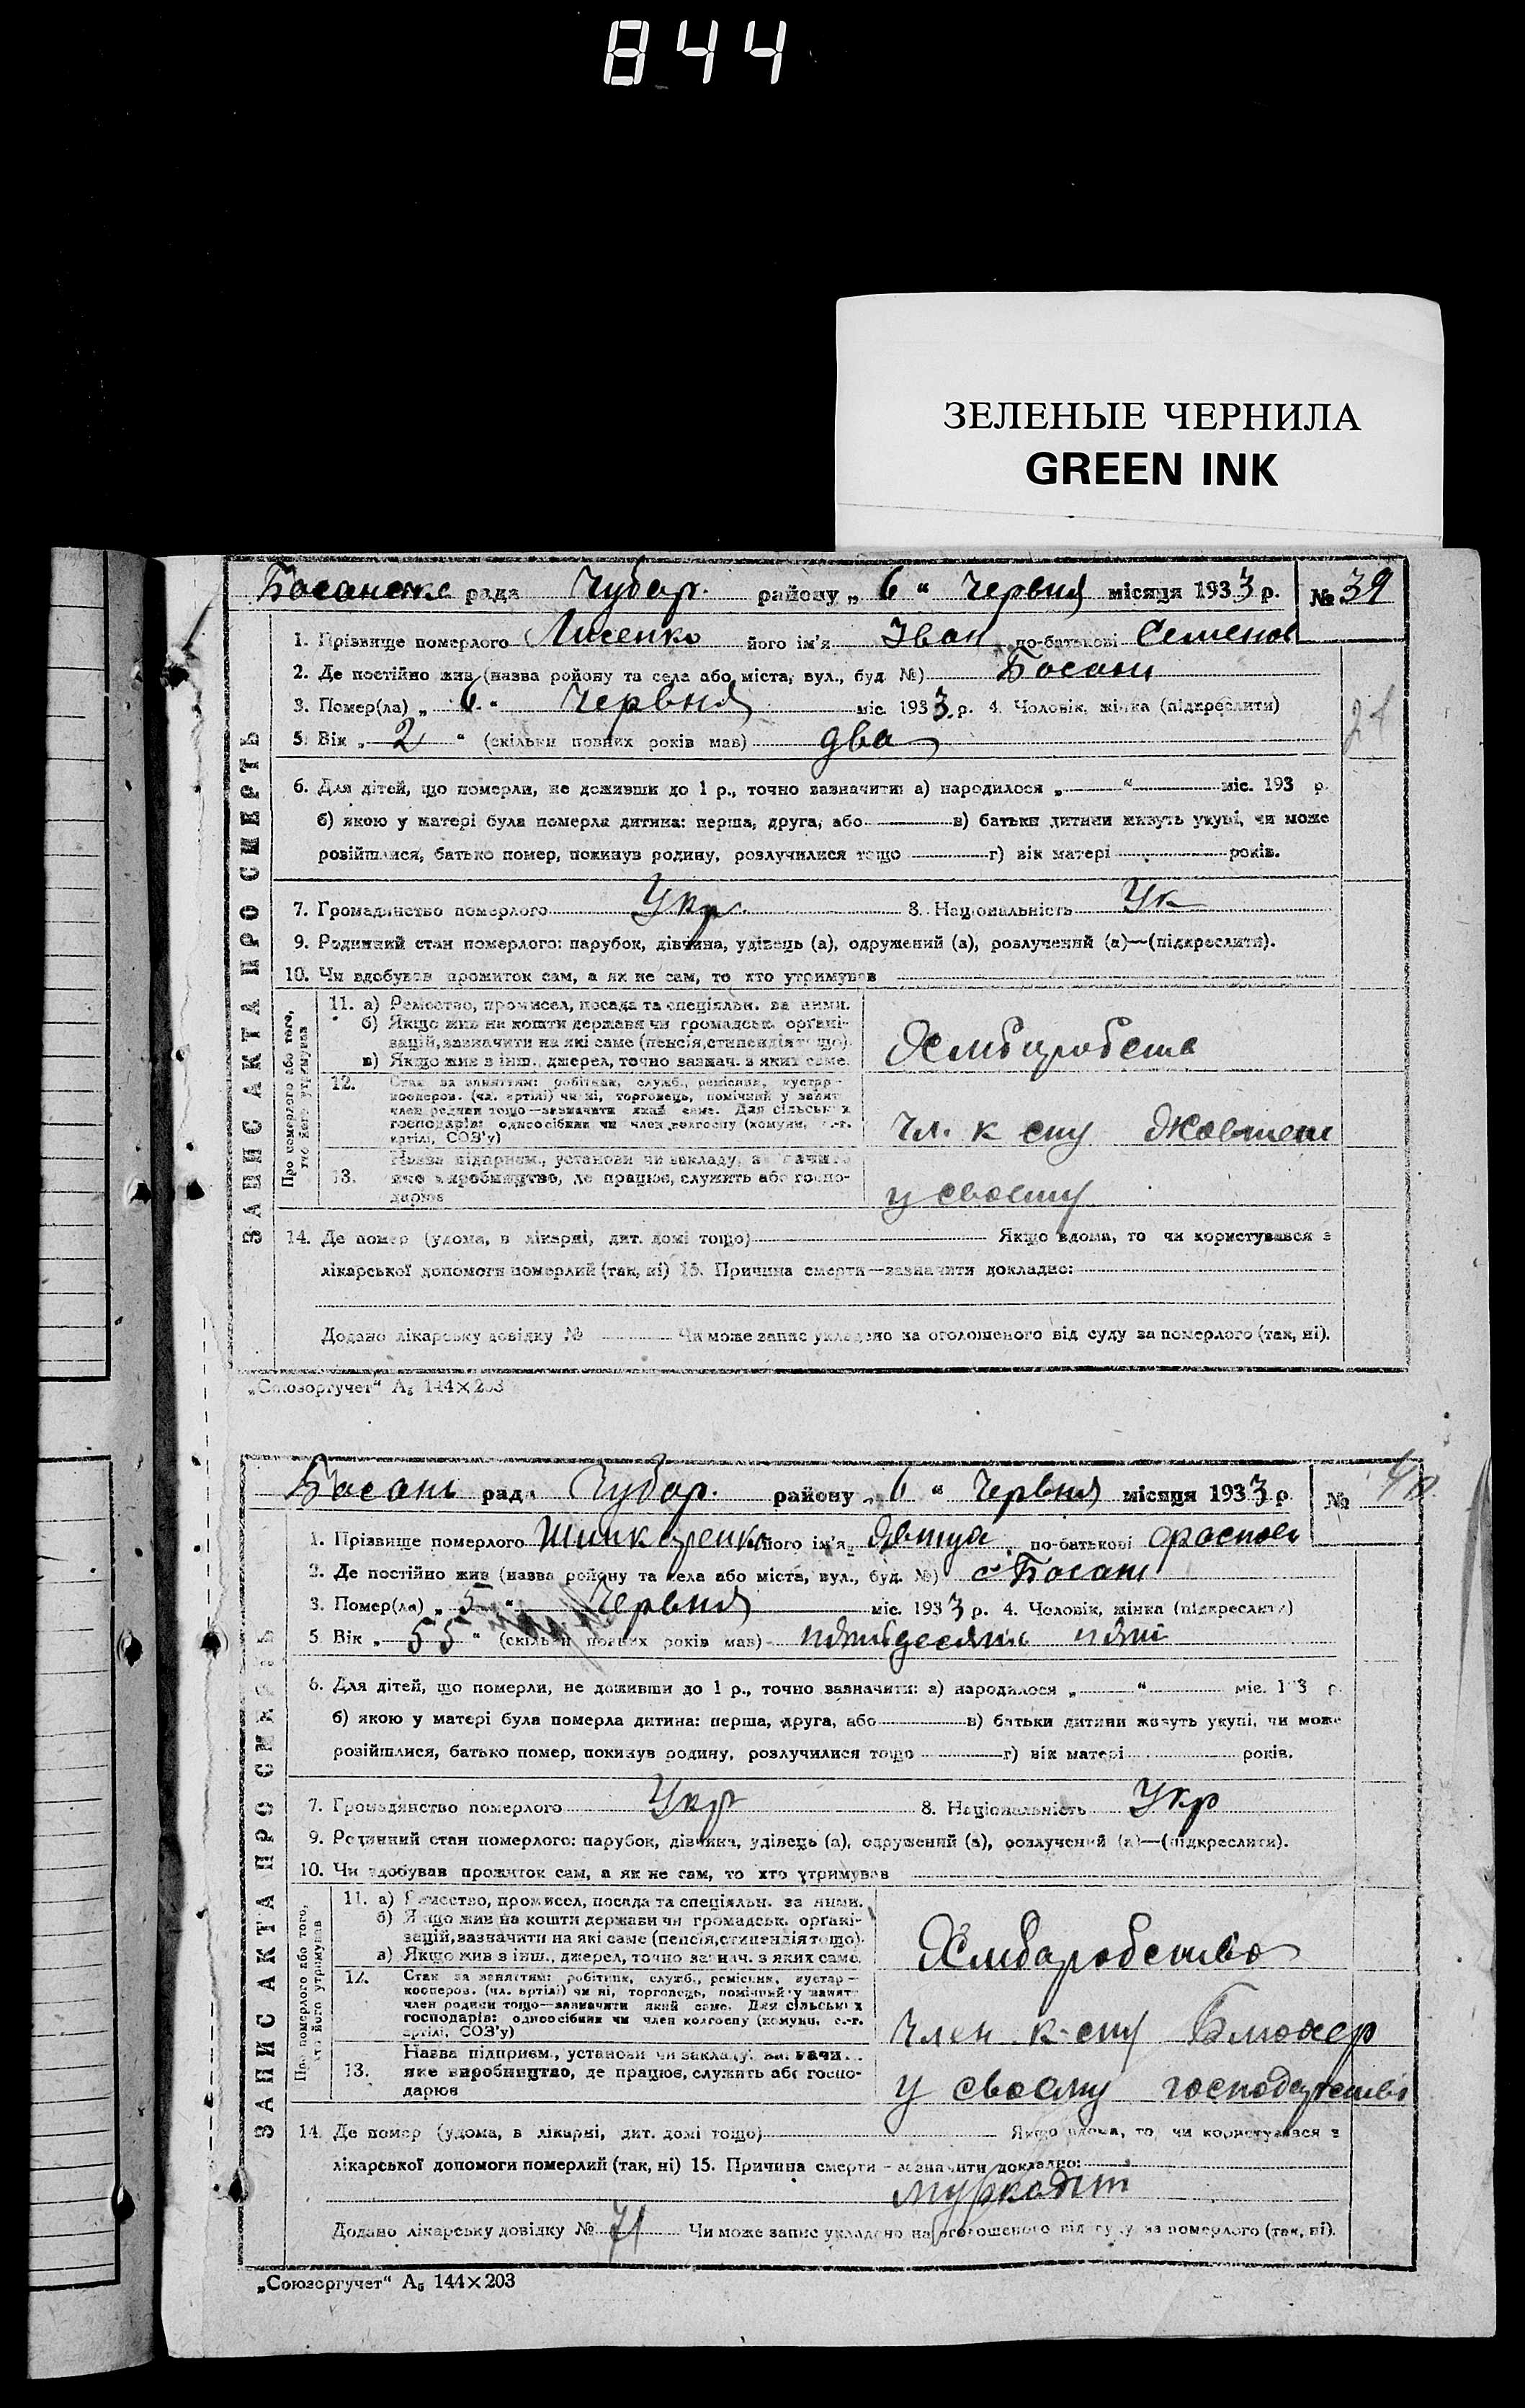 844
ЗЕЛЕНЫЕ ЧЕРНИЛА
GREEN INK
Басанска рада Чубар. району „ 6 “ Червня місяця 1933 р. № 39
ЗАПИС АКТА ПРО СМЕРТЬ
1. Прізвище померлого Лисенко його ім'я Іван по-батькові Семенов
2. Де постійно жив (назва району та села або міста, вул., буд. №) Басань
3. Помер(ла) „ 6 “ Червня міс. 1933 р. 4. Чоловік, жінка (підкреслити)
5. Вік „ 2 “ (скільки повних років мав) два
6. Для дітей, що померли, не доживши до 1 р., точно зазначити: а) народилося „ “ міс. 193 р.
б) якою у матері була померла дитина: перша, друга, або в) батьки дитини живуть укупі, чи може
розійшлися, батько помер, покинув родину, розлучилися тощо г) вік матері років.
7. Громадянство померлого Укр. 8. Національність Ук
9. Родинний стан померлого: парубок, дівчина, удівець (а), одружений (а), розлучений (а)—(підкреслити).
10. Чи здобував прожиток сам, а як не сам, то хто утримував
Про померлого або того, хто його утримував
11. а) Ремество, промисел, посада та спеціяльн. за ними.
б) Якщо жив на кошти держави чи громадськ. органі-
зацій, зазначити на які саме (пенсія, стипендія тощо).
в) Якщо жив з інш. джерел, точно зазнач. з яких саме.
Хліборобство
12. Стан за заняттям: робітник, служб., ремісник, кустар-
кооперов. (чл. артілі) чи ні, торговець, помічний у занят
член родини тощо—зазначити який саме. Для сільських
господарів: одноосібник чи член колгоспу (комуни, с.-г.
артілі, СОЗ'у)
Чл. к спу Жовтень
13. Назва підприєм., установи чи закладу, зазначити
яке виробництво, де працює, служить або госпо-
дарює
у своєму
14. Де помер (удома, в лікарні, дит. домі тощо) Якщо вдома, то чи користувався з
лікарської допомоги померлий (так, ні) 15. Причина смерти—зазначити докладно:
Додано лікарську довідку № Чи може запис укладено на оголошеного від суду за померлого (так, ні).
„Союзоргучет“ А5 144×203
Басань рада Чубар. району „ 6 “ Червня місяця 1933 р. № 40
ЗАПИС АКТА ПРО СМЕРТЬ
1. Прізвище померлого Шинкаренко його ім'я по-батькові
2. Де постійно жив (назва району та села або міста, вул., буд. №) с Басань
3. Помер(ла) „ 5 “ Червня міс. 1933 р. 4. Чоловік, жінка (підкреслити)
5. Вік „ 55 “ (скільки повних років мав) пятьдесять пять
6. Для дітей, що померли, не доживши до 1 р., точно зазначити: а) народилося „ “ міс. 193 р.
б) якою у матері була померла дитина: перша, друга, або в) батьки дитини живуть укупі, чи може
розійшлися, батько помер, покинув родину, розлучилися тощо г) вік матері років.
7. Громадянство померлого Укр 8. Національність Укр
9. Родинний стан померлого: парубок, дівчина, удівець (а), одружений (а), розлучений (а)—(підкреслити).
10. Чи здобував прожиток сам, а як не сам, то хто утримував
Про померлого або того, хто його утримував
11. а) Ремество, промисел, посада та спеціяльн. за ними.
б) Якщо жив на кошти держави чи громадськ. органі-
зацій, зазначити на які саме (пенсія, стипендія тощо).
в) Якщо жив з інш. джерел, точно зазнач. з яких саме.
Хліборобство
12. Стан за заняттям: робітник, служб., ремісник, кустар-
кооперов. (чл. артілі) чи ні, торговець, помічний у занят
член родини тощо—зазначити який саме. Для сільських
господарів: одноосібник чи член колгоспу (комуни, с.-г.
артілі, СОЗ'у)
Член к-спу Блюхер
13. Назва підприєм., установи чи закладу, зазначити
яке виробництво, де працює, служить або госпо-
дарює
у своєму господарстві
14. Де помер (удома, в лікарні, дит. домі тощо) Якщо вдома, то чи користувався з
лікарської допомоги померлий (так, ні) 15. Причина смерти—зазначити докладно:
Додано лікарську довідку № 71 Чи може запис укладено на оголошеного від суду за померлого (так, ні).
„Союзоргучет“ А5 144×203